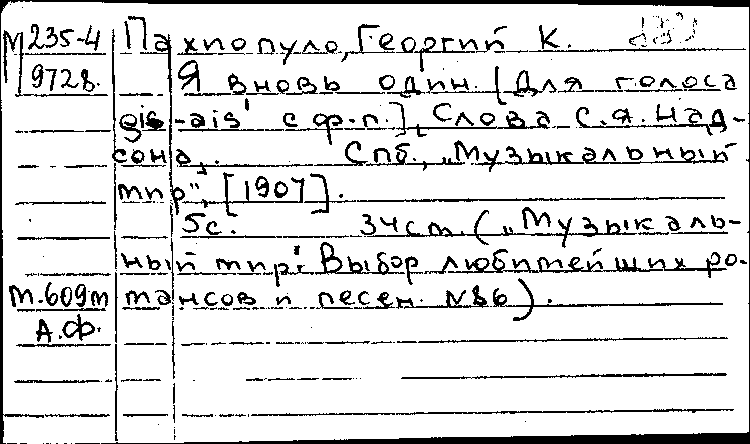 М 235-4 Пахпопуло, Георгий К.
972в. Я вновь один. [Для голоса
gis-ais' с ф.п.], Слова С.Я. Над-
сона,. Спб., „Музыкальный
мир", [1907].
5с. 34cm. („Музыкаль-
ный мир". Выбор любимейших ро-
т.609т мансов и песен. №86).
А.Ф.